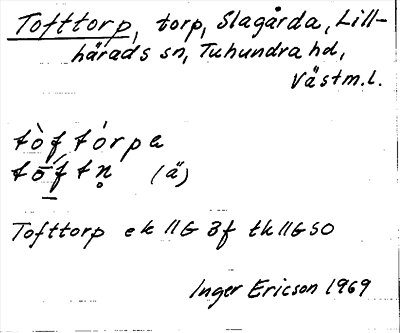 Tofttorp, torp, Slagårda, Lill-
härads sn, Tuhundra hd,
Västm.l.
tòftórpa
tō̱f́tn̥ (ä)
Tofttorp ek 11G 3f tk 11G SO
Inger Ericson 1969